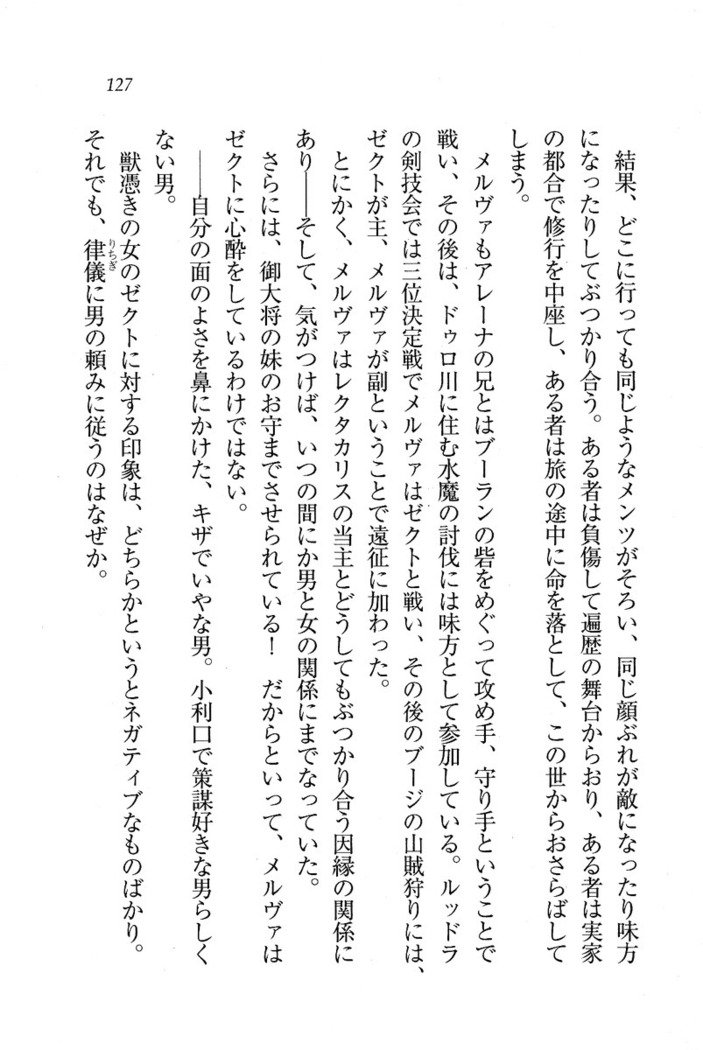 127
結果、どこに行っても同じようなメンツがそろい、同じ顔ぶれが敵になったり味方
になったりしてぶつかり合う。ある者は負傷して遍歴の舞台からおり、ある者は実家
の都合で修行を中座し、ある者は旅の途中に命を落として、この世からおさらばして
しまう。
メルヴァもアレーナの兄とはブーランの砦をめぐって攻め手、守り手ということで
戦い、その後は、ドゥロ川に住む水魔の討伐には味方として参加している。ルッドラ
の剣技会では三位決定戦でメルヴァはゼクトと戦い、その後のブージの山賊狩りには、
ゼクトが主、メルヴァが副ということで遠征に加わった。
とにかく、メルヴァはレクタカリスの当主とどうしてもぶつかり合う因縁の関係に
あり――そして、気がつけば、いつの間にか男と女の関係にまでなっていた。
さらには、御大将の妹のお守までさせられている！　だからといって、メルヴァは
ゼクトに心酔をしているわけではない。
――自分の面のよさを鼻にかけた、キザでいやな男。小利口で策謀好きな男らしく
ない男。
獣憑きの女のゼクトに対する印象は、どちらかというとネガティブなものばかり。
それでも、律儀りちぎに男の頼みに従うのはなぜか。